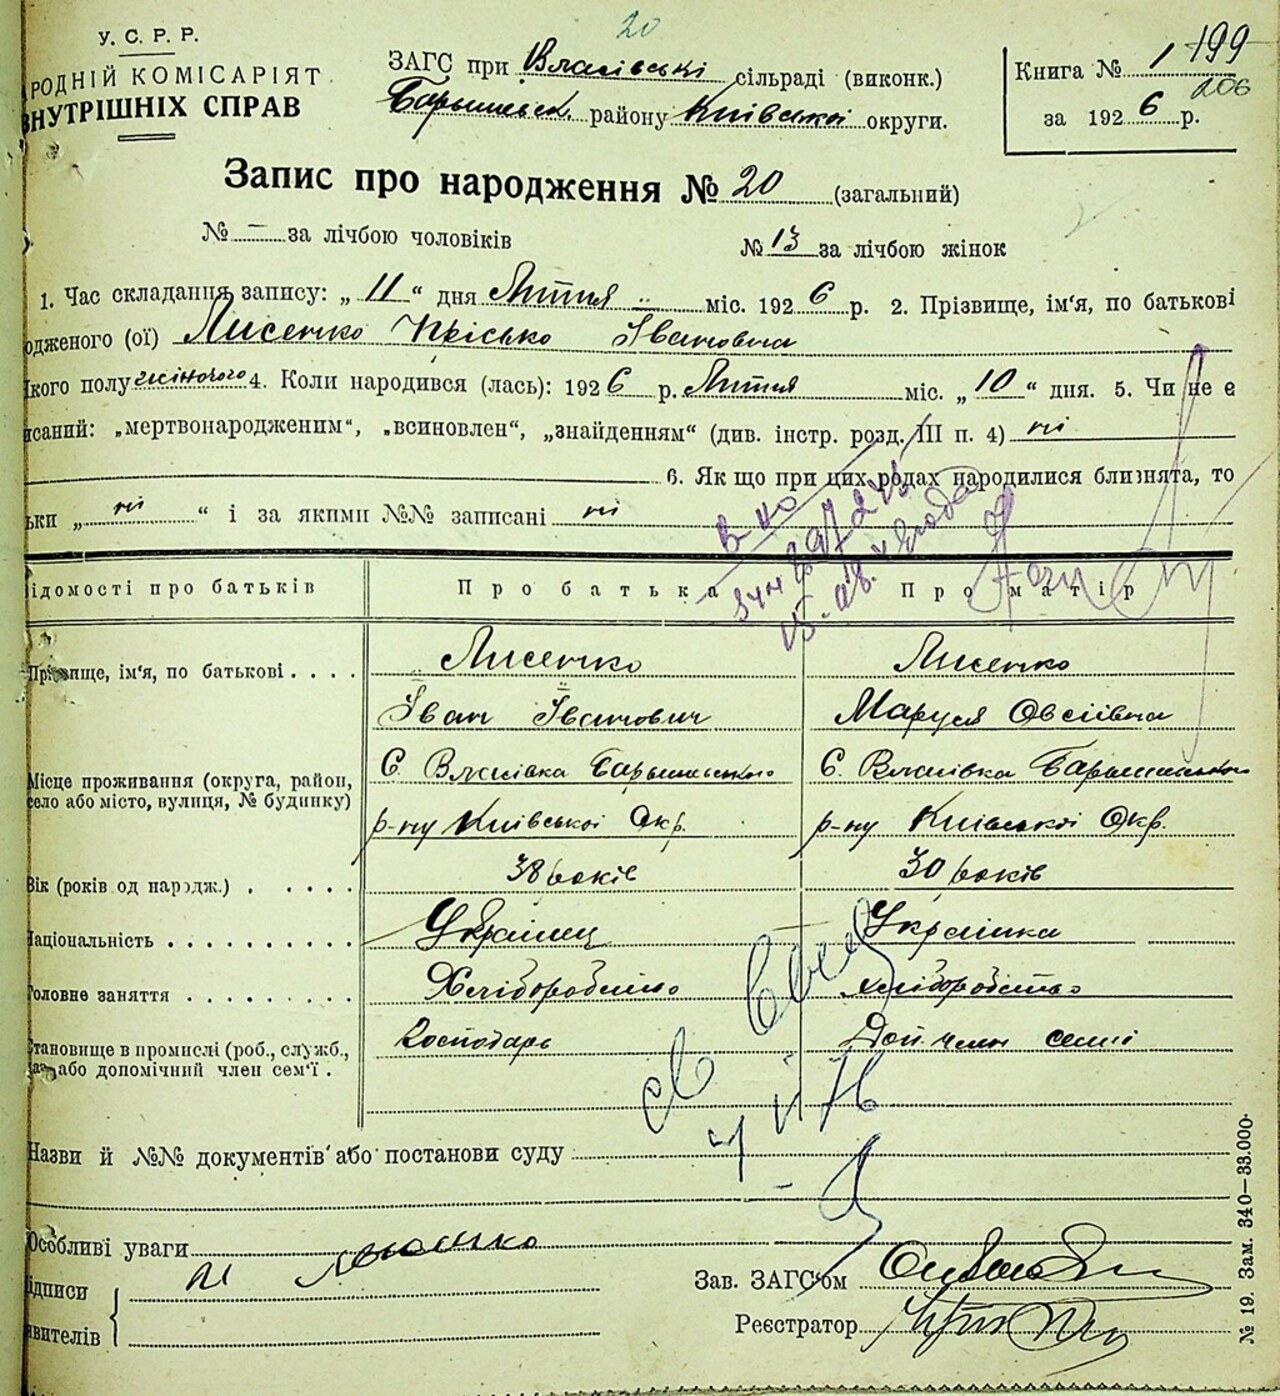 20
У. С. Р. Р.
РОДНІЙ КОМІСАРІЯТ
ВНУТРІШНІХ СПРАВ
ЗАГС при Власівські сільраді (виконк.)
Барышевск. району Київської округи.
Книга № 1 199
206
за 1926 р.
Запис про народження № 20 (загальний)
№ – за лічбою чоловіків № 13 за лічбою жінок
1. Час складання запису: „ 11 “ дня Лютня міс. 1926 р. 2. Прізвище, ім'я, по батькові
одженого (ої) Лисенко Прісько Івановна
якого полу жіночого 4. Коли народився (лась): 1926 р. Лютня міс. „ 10 “ дня. 5. Чи не є
исаний: „мертвонародженим“, „всиновлен“, „знайденням“ (див. інстр. розд. III п. 4) ні
6. Як що при цих родах народилися близнята, то
ьки „ ні “ і за якими №№ записані ні
ідомості про батьків Про батька Про матір
Прізвище, ім'я, по батькові . . . . Лисенко Лисенко
Іван Іванович Маруся Овсіївна
Місце проживання (округа, район, село або місто, вулиця, № будинку) С. Власівка Барышевського С. Власівка Барышевського
р-ну Київської Окр. р-ну Київської Окр.
Вік (років од народж.) . . . . . 38 років 30 років
Національність . . . . . . . . . . Українец Українка
Головне заняття . . . . . . . . . Хліборобство хліборобство
Становище в промислі (роб., служб., або допомічний член сем'ї . Господарь Доп. член семії
76
Назви й №№ документів або постанови суду
Особливі уваги
ідписи
явителів
Зав. ЗАГС'ом
Реєстратор
№ 19. Зам. 340—33.000.